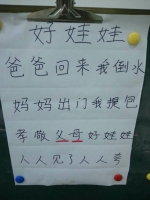 好娃娃
爸爸回来我倒水
妈妈出门我提包
孝敬父母好娃娃
人人见了人人夸